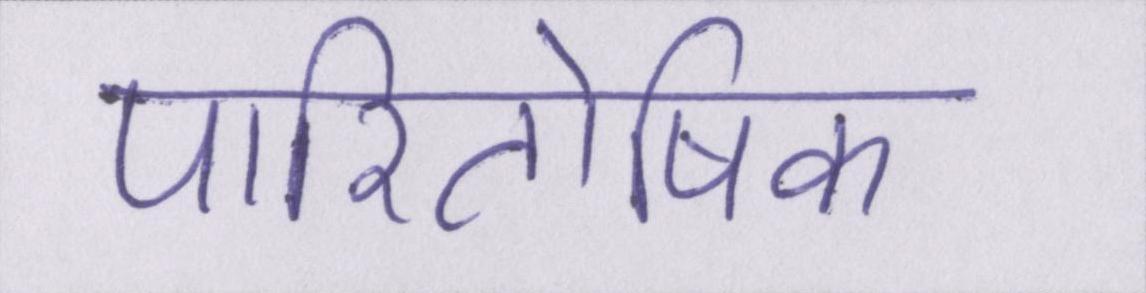 पारितोषिक